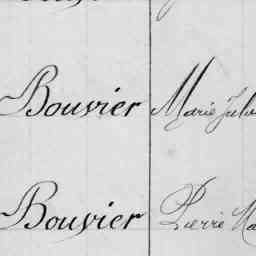 Bouvier Marie
Bouvier Pierre